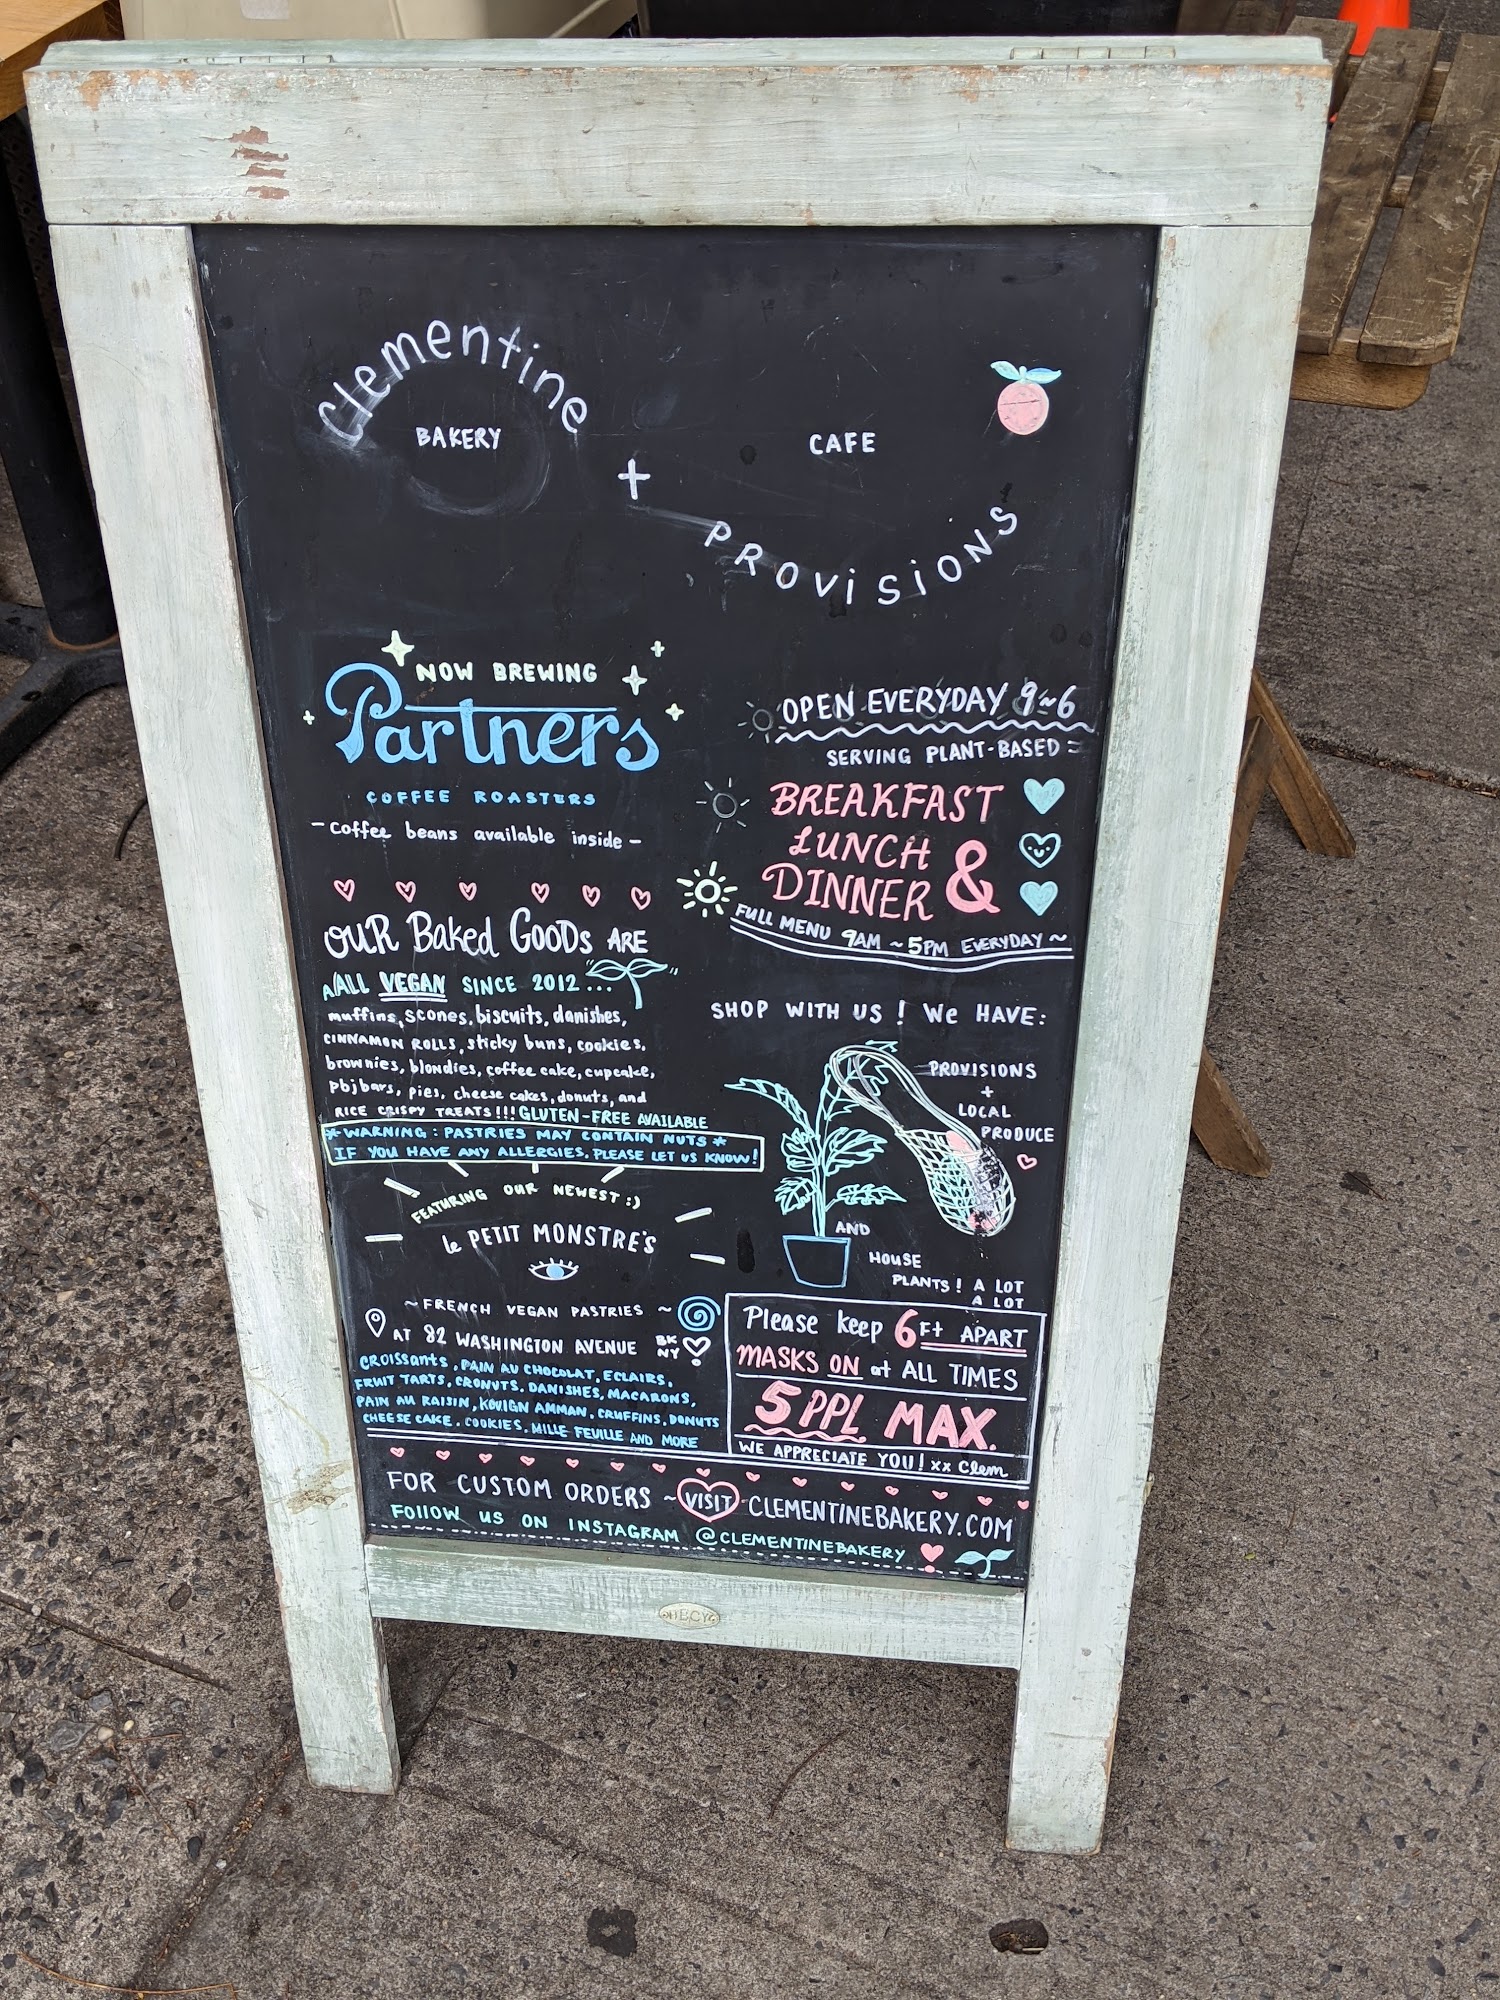 Clementine
BAKERY
+
CAFE
PROVISIONS
NOW BREWING
Partners
COFFEE ROASTERS
-Coffee beans available inside-
OUR Baked GOODS ARE
ALL VEGAN SINCE 2012...
muffins, scones, biscuits, danishes,
CINNAMON ROLLS, sticky buns, cookies,
brownies, blondies, coffee cake, cupcake,
Pbjbars, pies, cheese cakes, donuts, and
RICE CRISPY TREATS!!! GLUTEN-FREE AVAILABLE
*WARNING: PASTRIES MAY CONTAIN NUTS*
IF YOU HAVE ANY ALLERGIES, PLEASE LET US KNOW!
FEATURING OUR NEWEST :)
le PETIT MONSTRE'S
~FRENCH VEGAN PASTRIES~
AT 82 WASHINGTON AVENUE BK NY
CROISSANTS, PAIN AU CHOCOLAT, ECLAIRS,
FRUIT TARTS, CRONUTS, DANISHES, MACARONS,
PAIN AU RAISIN, KOUIGN AMMAN, CRUFFINS, DONUTS
CHEESECAKE, COOKIES, MILLE FEUILLE AND MORE
OPEN EVERYDAY 9~6
SERVING PLANT-BASED=
BREAKFAST
LUNCH &
DINNER
FULL MENU 9AM ~ 5PM EVERYDAY~
SHOP WITH US! We HAVE:
PROVISIONS
+
LOCAL
PRODUCE
AND
HOUSE
PLANTS! A LOT
A LOT
Please keep 6Ft APART
MASKS ON at ALL TIMES
5 PPL MAX.
WE APPRECIATE YOU! xx Clem
FOR CUSTOM ORDERS ~ VISIT CLEMENTINEBAKERY.COM
FOLLOW US ON INSTAGRAM @CLEMENTINEBAKERY
HBCY